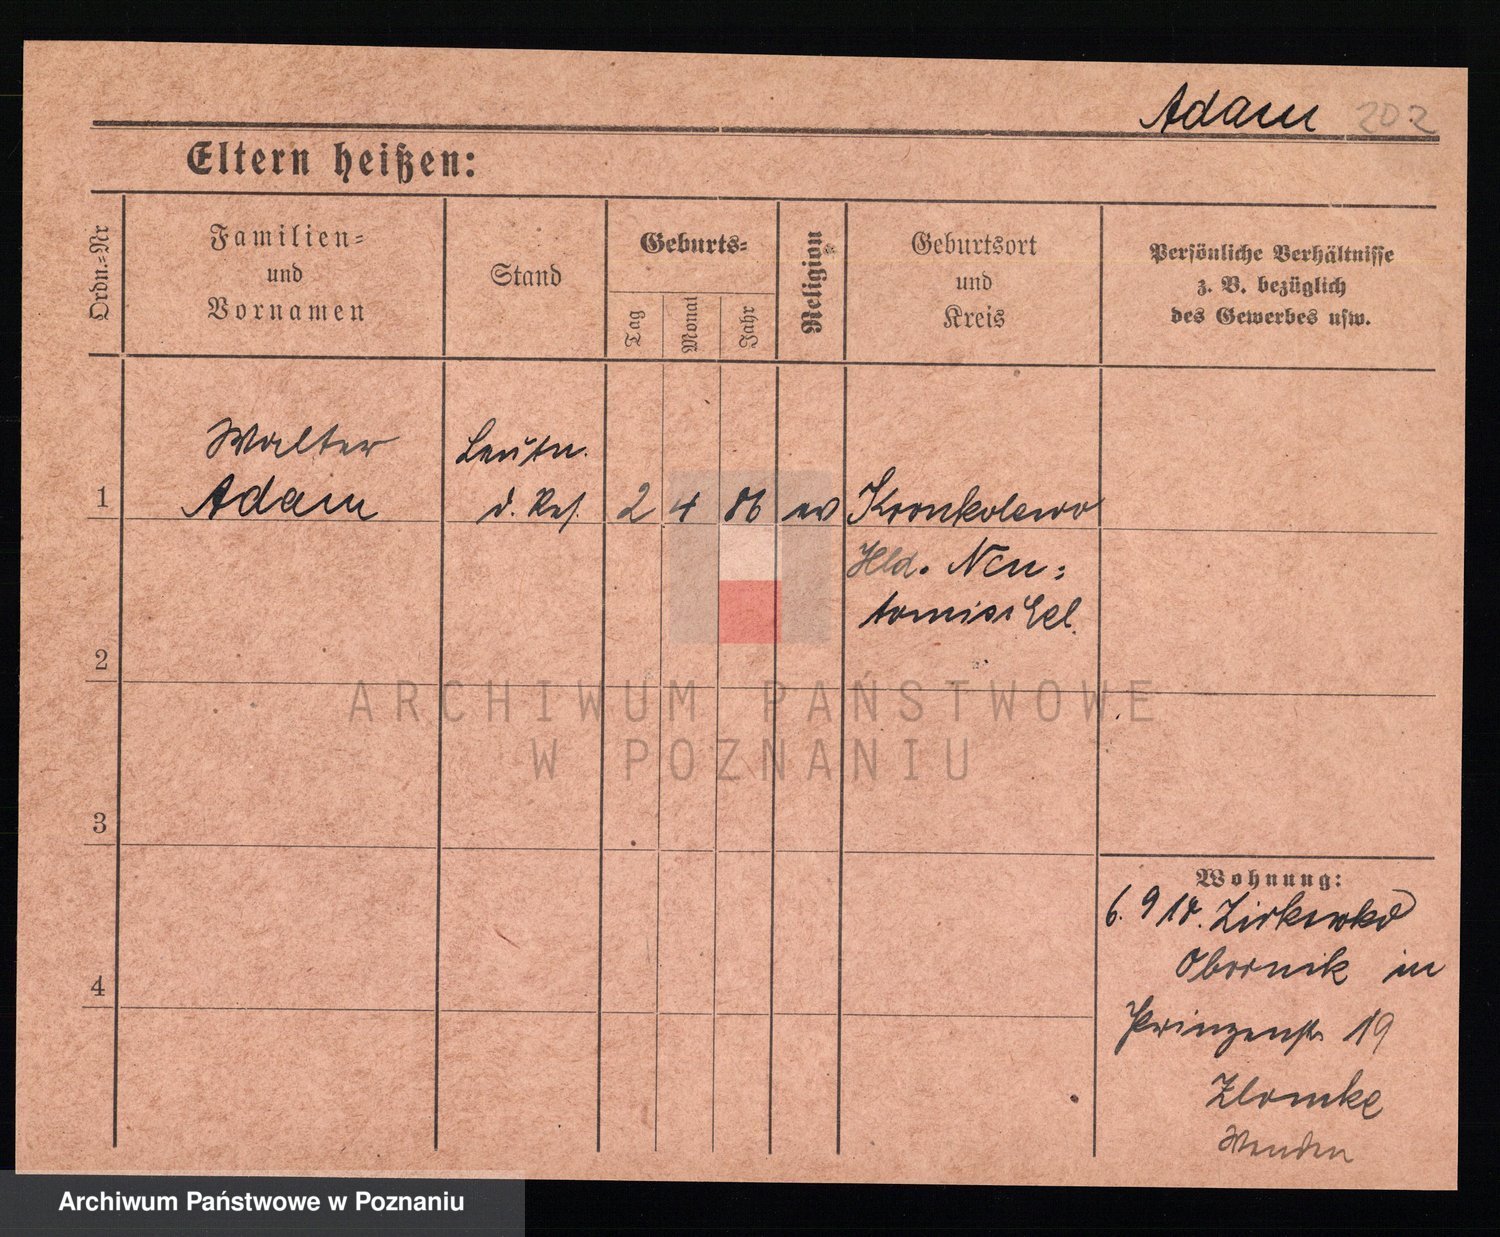 Adam 202
Eltern heißen:
Ordn.=Nr
Familien=
und
Vornamen
Stand
Geburts=
Tag
Monat
Jahr
Religion
Geburtsort
und
Kreis
Persönliche Verhältnisse
z. B. bezüglich
des Gewerbes usw.
Walter
Adam
Leutn.
d. Res.
1
2 4 86 ev
Kronkolewo
Hld. Neu=
tomischel
2
3
4
Wohnung:
6. 9 18. Zirkowko
Obornik in
Prinzenstr 19
Zlomke
Wenden
ARCHIWUM PAŃSTWOWE
W POZNANIU
Archiwum Państwowe w Poznaniu